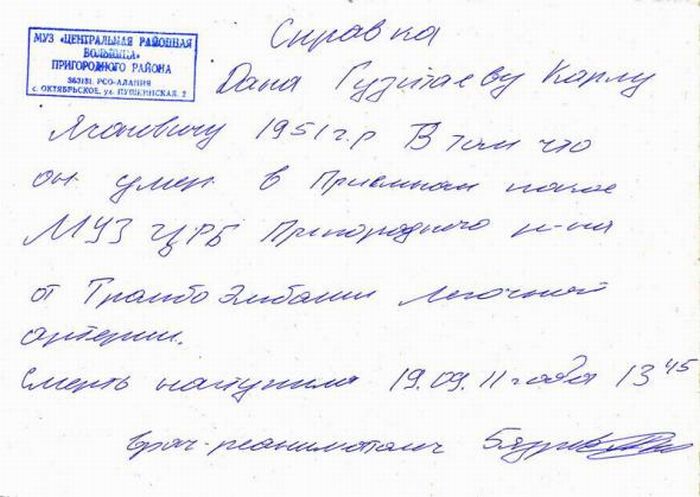 МУЗ «ЦЕНТРАЛЬНАЯ РАЙОННАЯ
БОЛЬНИЦА»
ПРИГОРОДНОГО РАЙОНА
363131, РСО-АЛАНИЯ
с. ОКТЯБРЬСКОЕ, ул. ПУШКИНСКАЯ, 2
Справка
Дана Гузитаеву Карлу
1951 г.р В том что
он умер в Приемном покое
МУЗ ЦРБ Пригородного р-на
от Тромбоэмболии легочной
артерии.
Смерть наступила 19.09.11 года 13 45
врач-реаниматолог